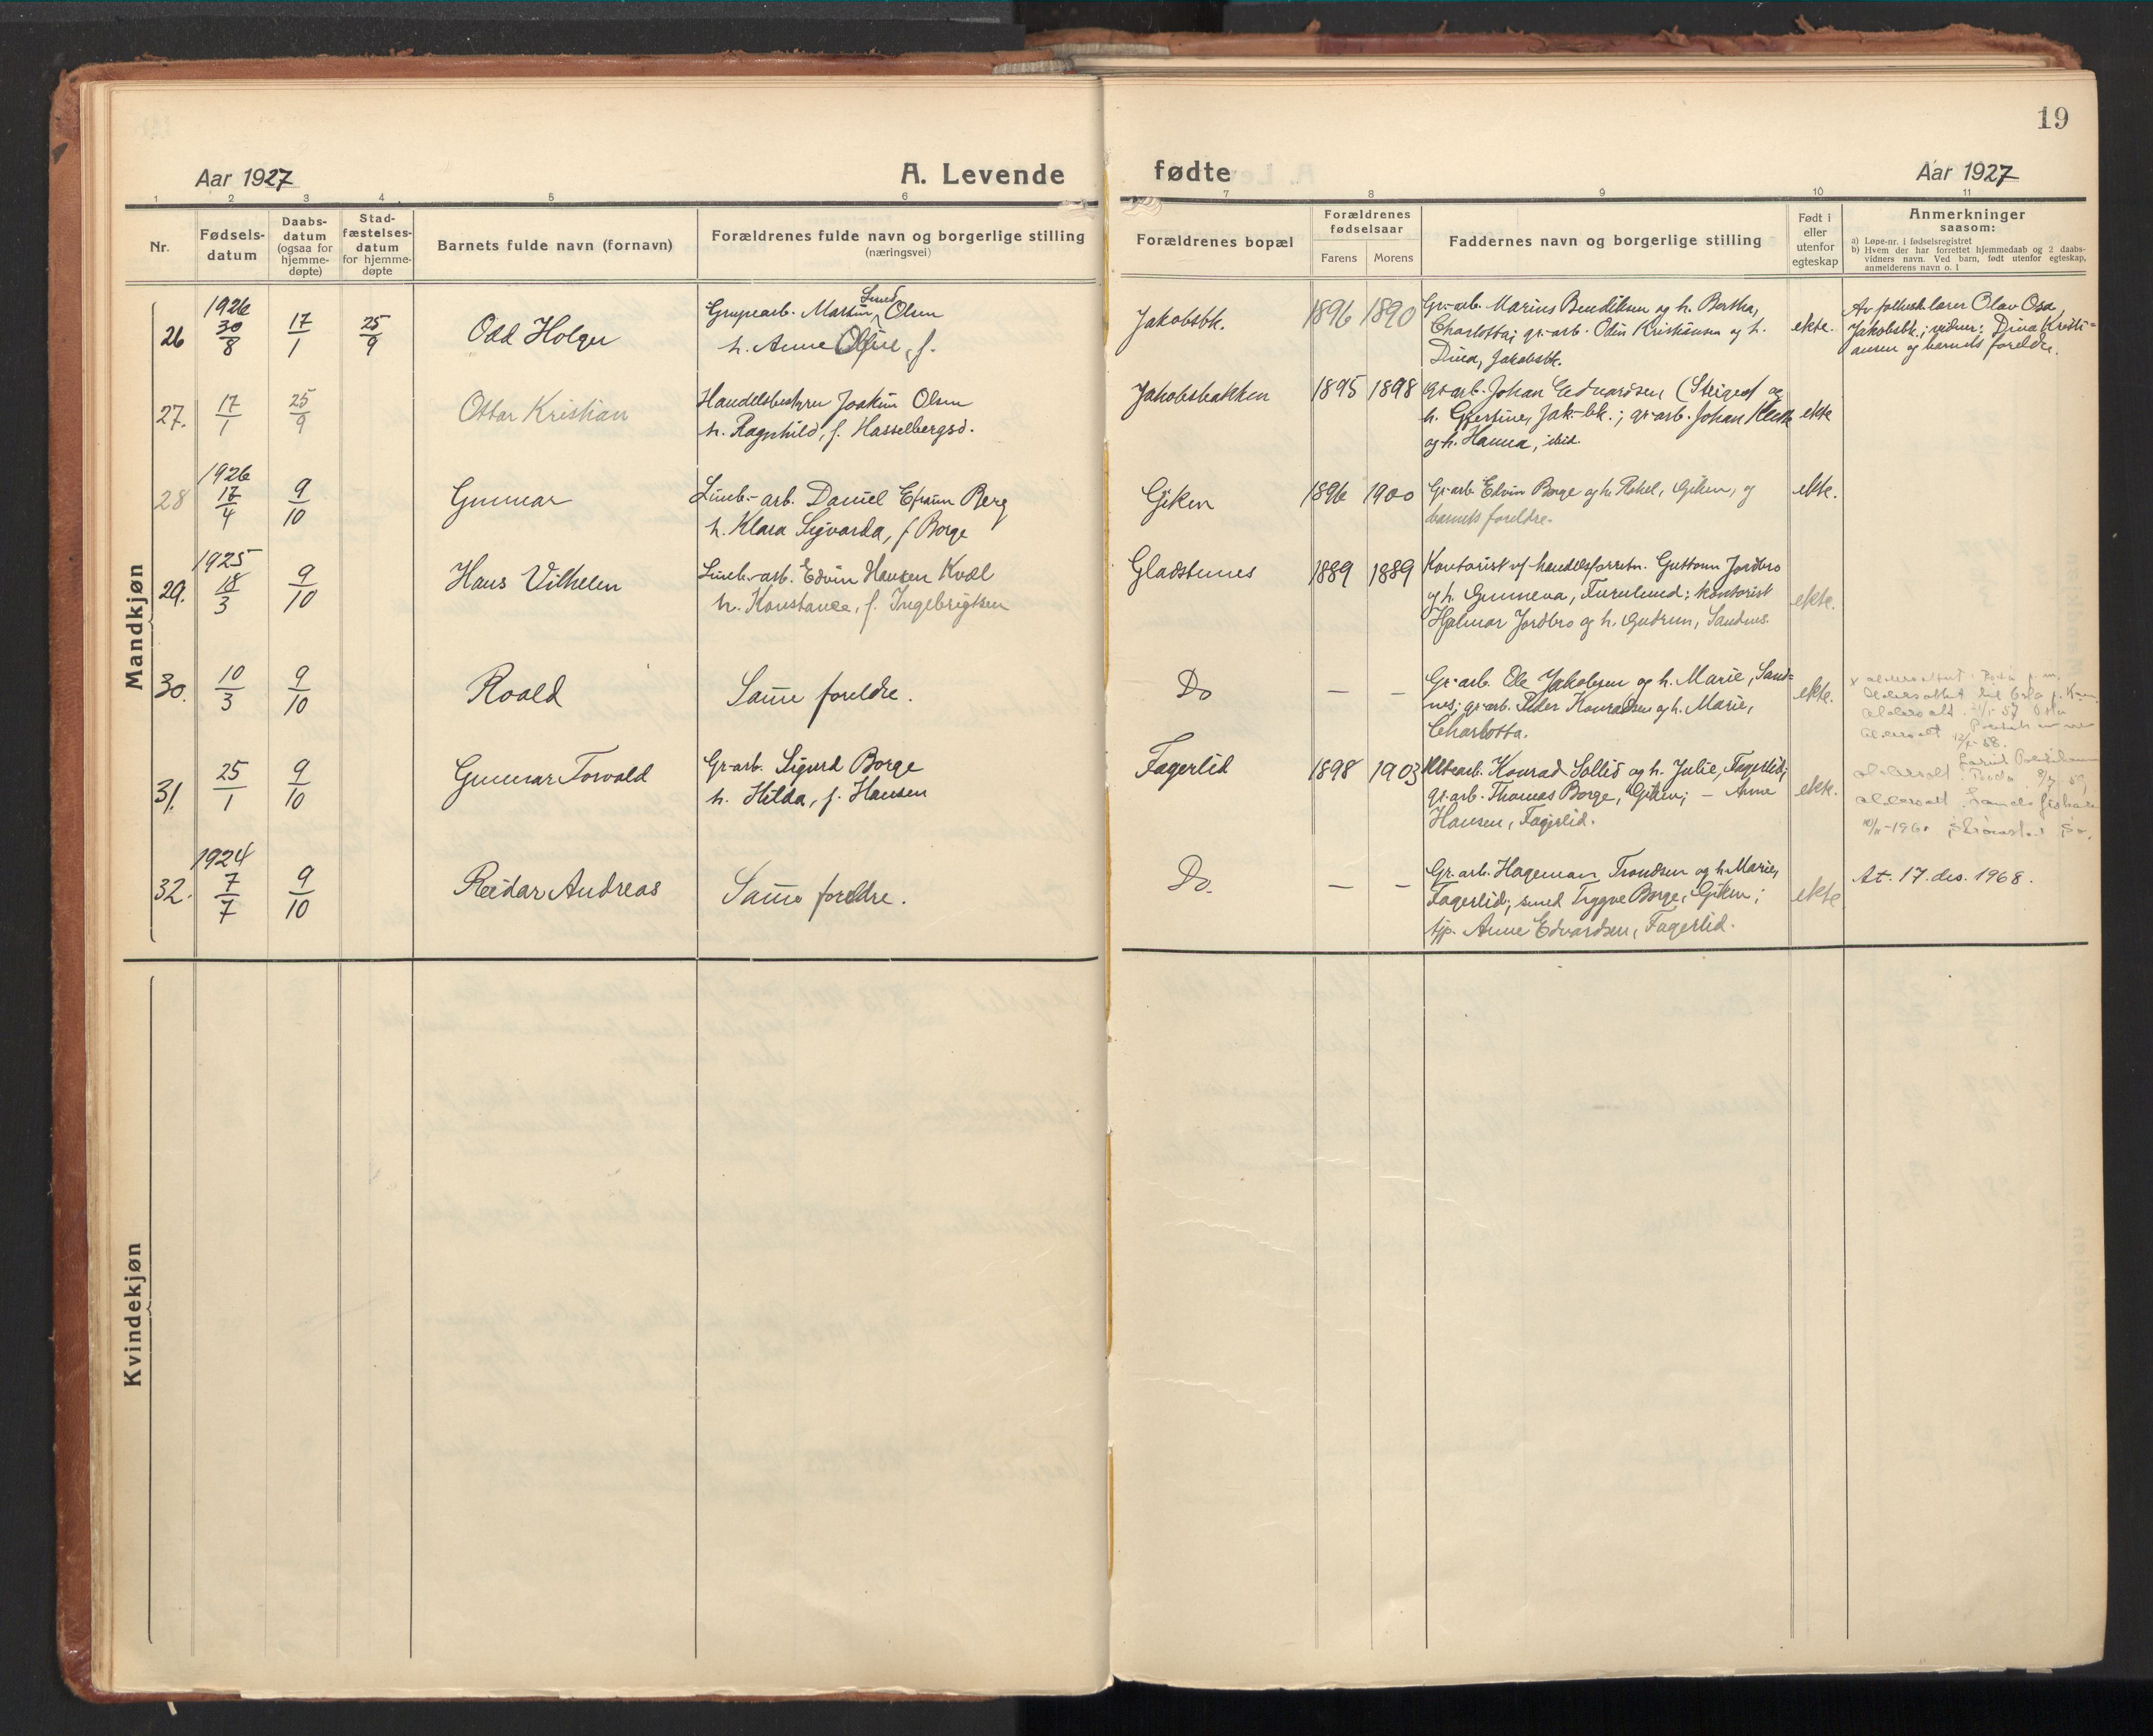 19
Aar 1927
A. Levende
fødte
Aar 1927
1 2 3 4 5 6 7 8 9 10 11
Nr.
Fødsels-
datum
Daabs-
datum
(ogsaa for
hjemme-
døpte)
Stad-
fæstelses-
datum
for hjemme-
døpte
Barnets fulde navn (fornavn)
Forældrenes fulde navn og borgerlige stilling
(næringsvei)
Forældrenes bopæl
Forældrenes
fødselsaar
Farens Morens
Faddernes navn og borgerlige stilling
Født i
eller
utenfor
egteskap
Anmerkninger
saasom:
a) Løpe-nr. i fødselsregistret
b) Hvem der har forrettet hjemmedaab og 2 daabs-
vidners navn. Ved barn, født utenfor egteskap,
anmelderens navn o. l
Mandkjøn
26
1926
30/8
17/1
25/9
Odd Holger
Grupearb. Martin Olsen
h. Anne Oline, f.
Jakobsbk.
1896 1890
Gr.-arb. Marius Bendiksen og h. Bertha,
Charlotta; gr.-arb. Odin Kristiansen og h.
Dina, Jakobsbk.
ekte.
Av folkesk.lærer Olav Osa,
Jakobsbk.; vidner: Dina Kristi=
ansen og barnets foreldre.
27.
17/1
25/9
Ottar Kristian
Handelsbestyrer Joakim Olsen
h. Ragnhild, f. Hasselbergsd.
Jakobsbakken
1895 1898
Gr-arb. Johan Edvardsen, (Steigen) og
h. Gjertine, Jak-bk.; gr-arb. Johan
og h. Hanna, ibid.
ekte
28
1926
17/4
9/10
Gunnar
Lineb.-arb. Daniel Efraim Berg
h. Klara Sigvarda, f. Borge
Giken
1896 1900
Gr-arb. Edvin Borge og h. Rakel, Giken, og
barnets foreldre.
ekte.
29.
1925
18/3
9/10
Hans Vilhelm
Lineb.-arb. Edvin Hansen Kvæl
h. Konstance, f. Ingebrigtsen
Gladstunes
1889 1889
Kontorist v/ handelsforretn. Guttorm Jordbro
og h. Gunneva, Furulund; kontorist
Hjalmar Jordbro og h. Gudrun, Sandnes.
ekte.
30.
10/3
9/10
Roald
Samme foreldre.
Do
— —
Gr-arb. Ole Jakobsen og h. Marie, Sand=
nes; gr-arb. Peder Konradsen og h. Marie,
Charlotta.
ekte.
31.
25/1
9/10
Gunnar Torvald
Gr-arb. Sigurd Borge
h. Hilda, f. Hansen
Fagerlid
1898 1903
Konrad Sollid og h. Julie, Fagerlid;
gr-arb. Thomas Borge, Giken; — Anne
Hansen, Fagerlid.
ekte.
32.
1924
7/7
9/10
Reidar Andreas
Samme foreldre.
Do.
— —
Gr.arb. Hageman Trondsen og h. Marie,
Fagerlid; smed Trygve Borge, Giken;
tjp. Anne Edvardsen, Fagerlid.
ekte
At. 17. des. 1968.
Kvindekjøn